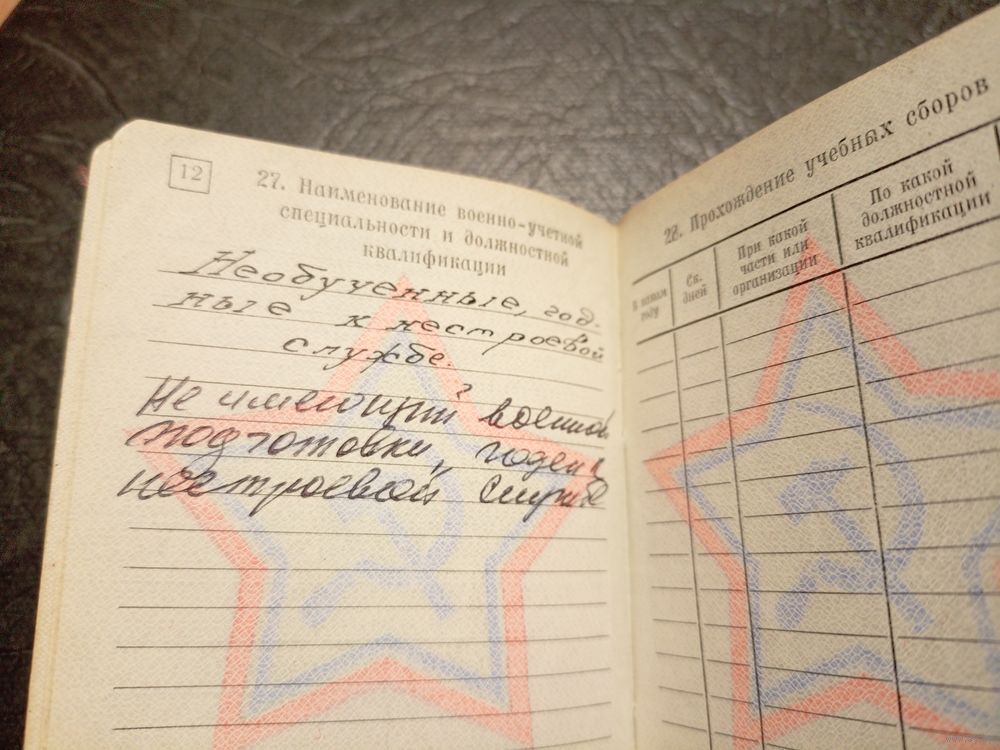 12
27. Наименование военно-учетной
специальности и должностной
квалификации
Необученные, год-
ные к нестроевой
службе.
Не имеющий военной
подготовки, годен к
нестроевой службе
28. Прохождение учебных сборов
В каком
году
Ск.
дней
При какой
части или
организации
По какой
должностной
квалификации